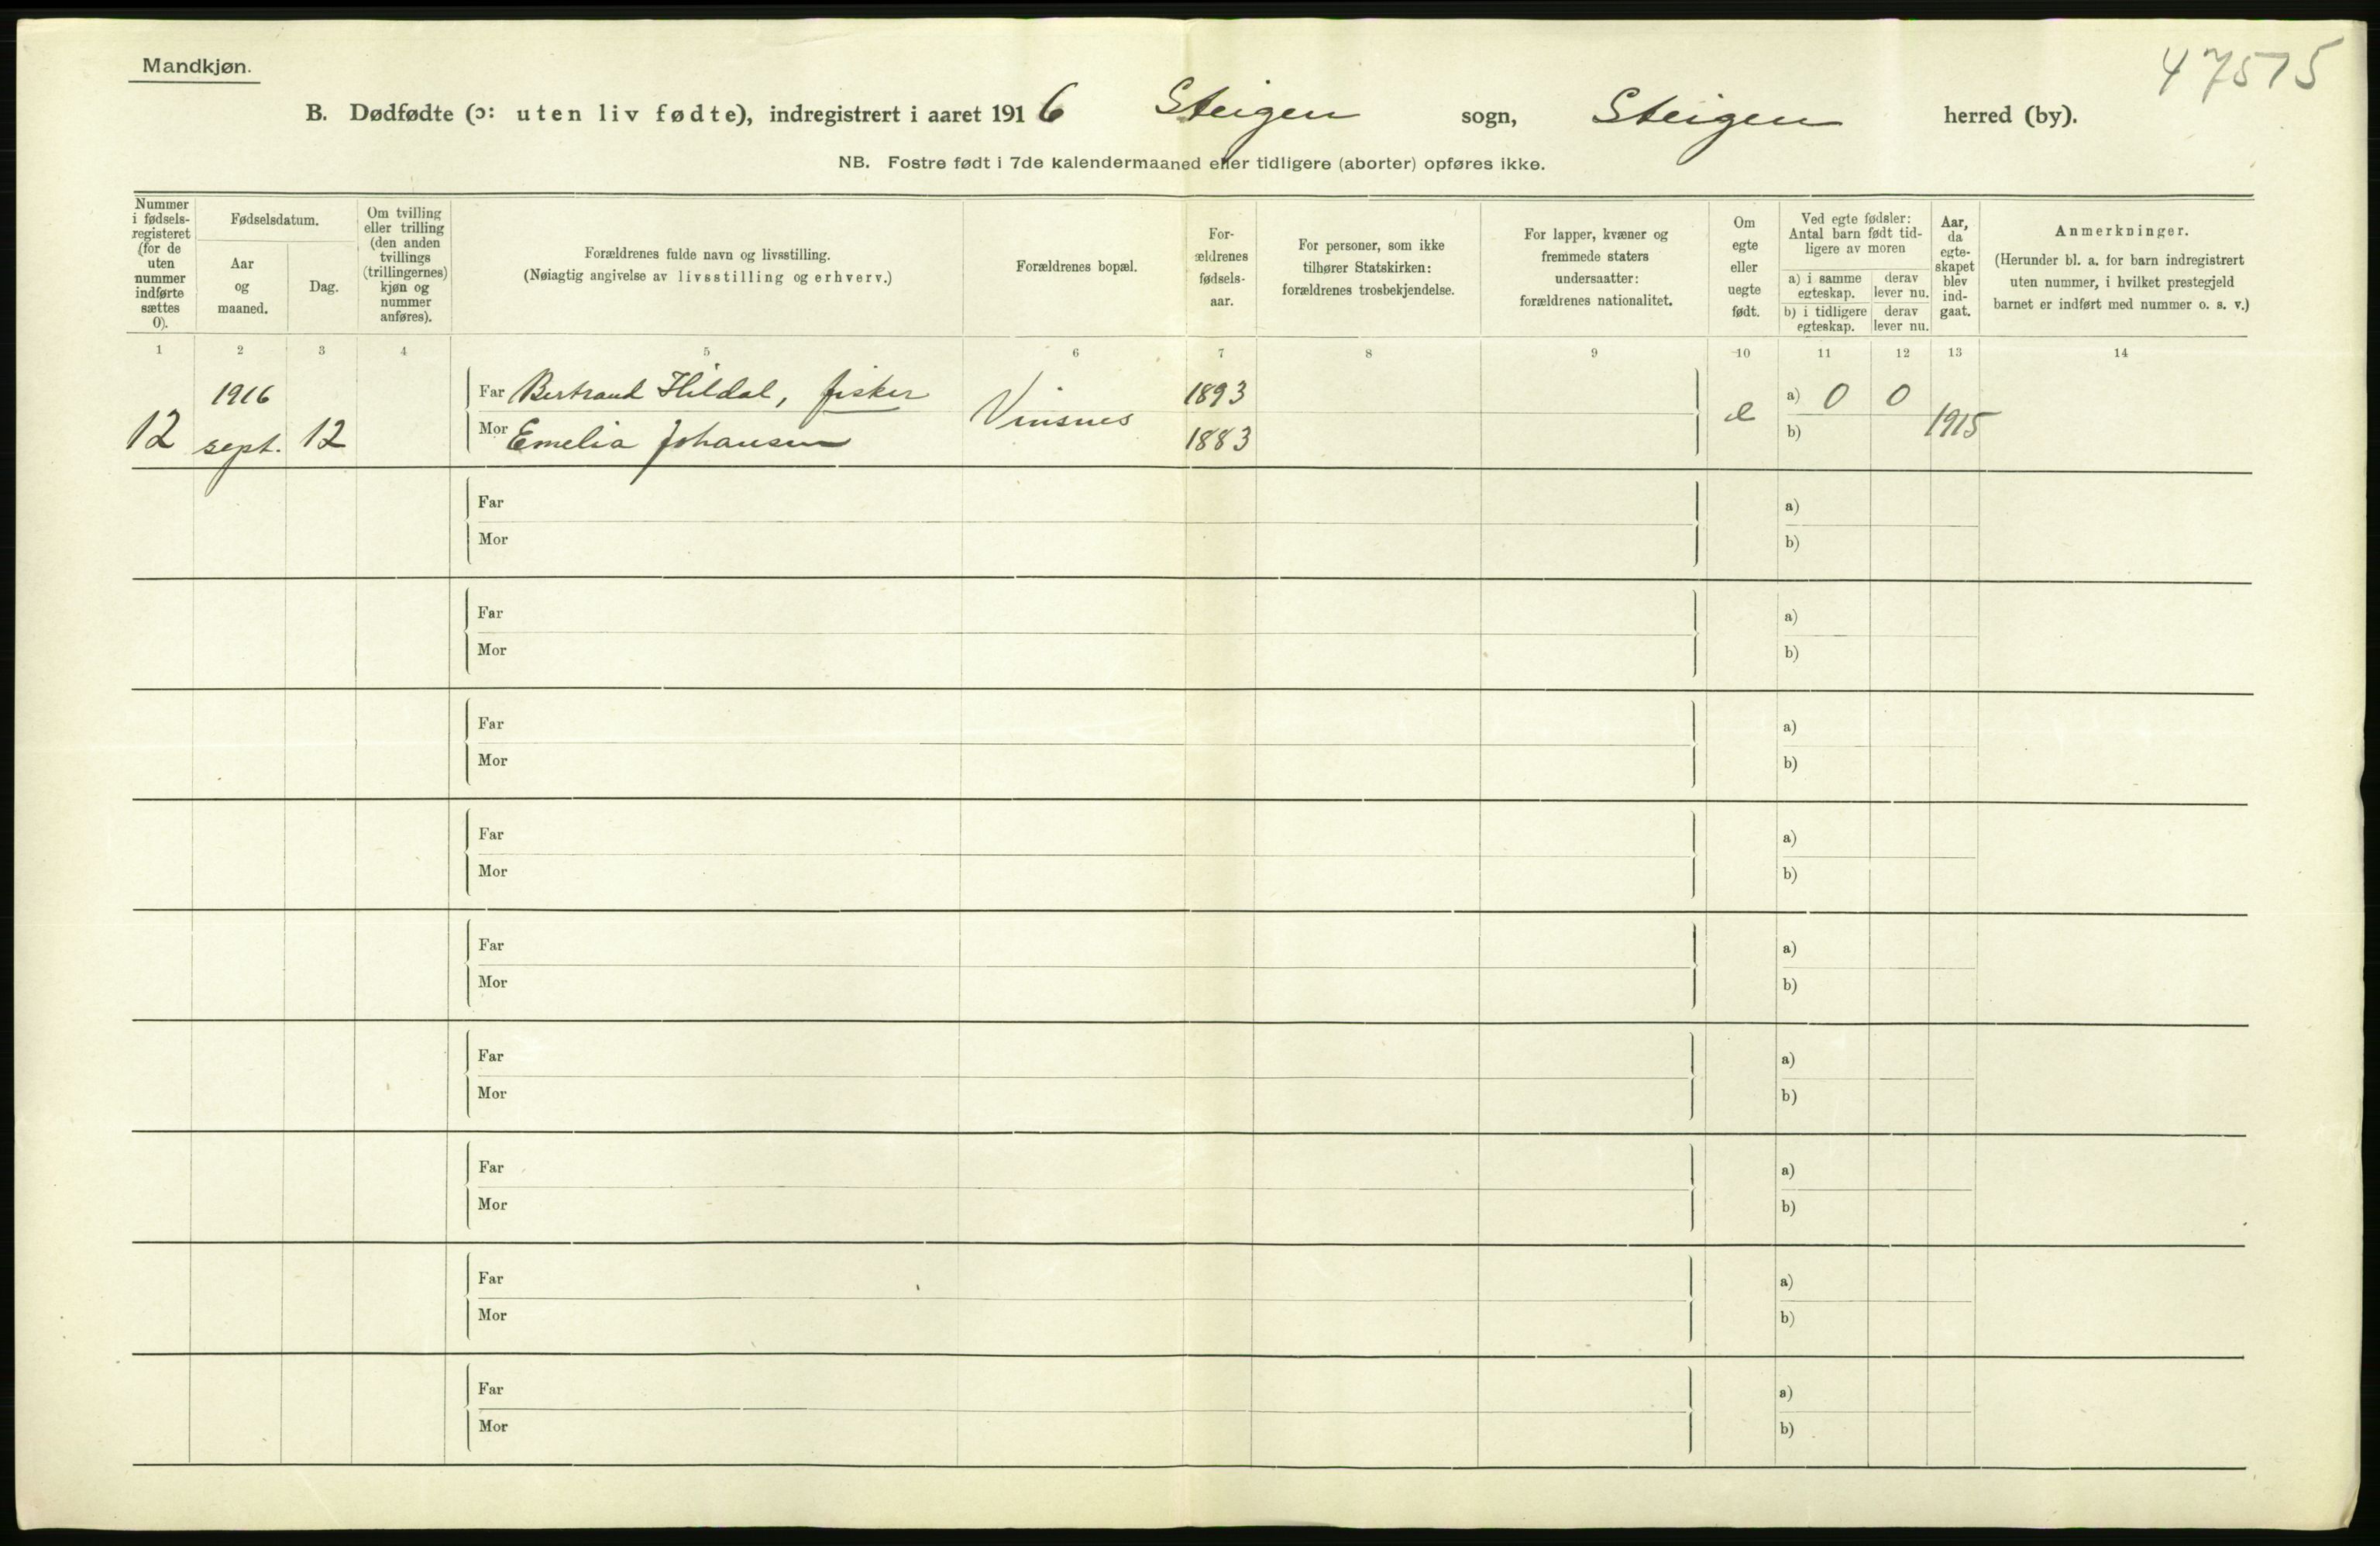 Mandkjøn.
47515
B. Dødfødte (ɔ: uten liv fødte), indregistrert i aaret 1916 Steigen sogn, Steigen herred (by).
NB. Fostre født i 7de kalendermaaned eller tidligere (aborter) opføres ikke.
Nummer
i fødsels-
registeret
(for de
uten
nummer
indførte
sættes
0).
Fødselsdatum.
Aar
og
maaned.
Dag.
Om tvilling
eller trilling
(den anden
tvillings
(trillingernes)
kjøn og
nummer
anføres).
Forældrenes fulde navn og livsstilling.
(Nøiagtig angivelse av livsstilling og erhverv.)
Forældrenes bopæl.
For-
ældrenes
fødsels-
aar.
For personer, som ikke
tilhører Statskirken:
forældrenes trosbekjendelse.
For lapper, kvæner og
fremmede staters
undersaatter:
forældrenes nationalitet.
Om
egte
eller
uegte
født.
Ved egte fødsler:
Antal barn født tid-
ligere av moren
a) i samme
egteskap.
derav
lever nu.
b) i tidligere
egteskap.
derav
lever nu.
Aar,
da
egte-
skapet
blev
ind-
gaat.
Anmerkninger.
(Herunder bl. a. for barn indregistrert
uten nummer, i hvilket prestegjeld
barnet er indført med nummer o. s. v.)
1 2 3 4 5 6 7 8 9 10 11 12 13 14
1916 Far Bertrand Hildal, fisker 1893 a) 0 0
12 sept. 12 Mor Emelia Johansen Vinsnes 1883 e b) 1915
Far a)
Mor b)
Far a)
Mor b)
Far a)
Mor b)
Far a)
Mor b)
Far a)
Mor b)
Far a)
Mor b)
Far a)
Mor b)
Far a)
Mor b)
Far a)
Mor b)